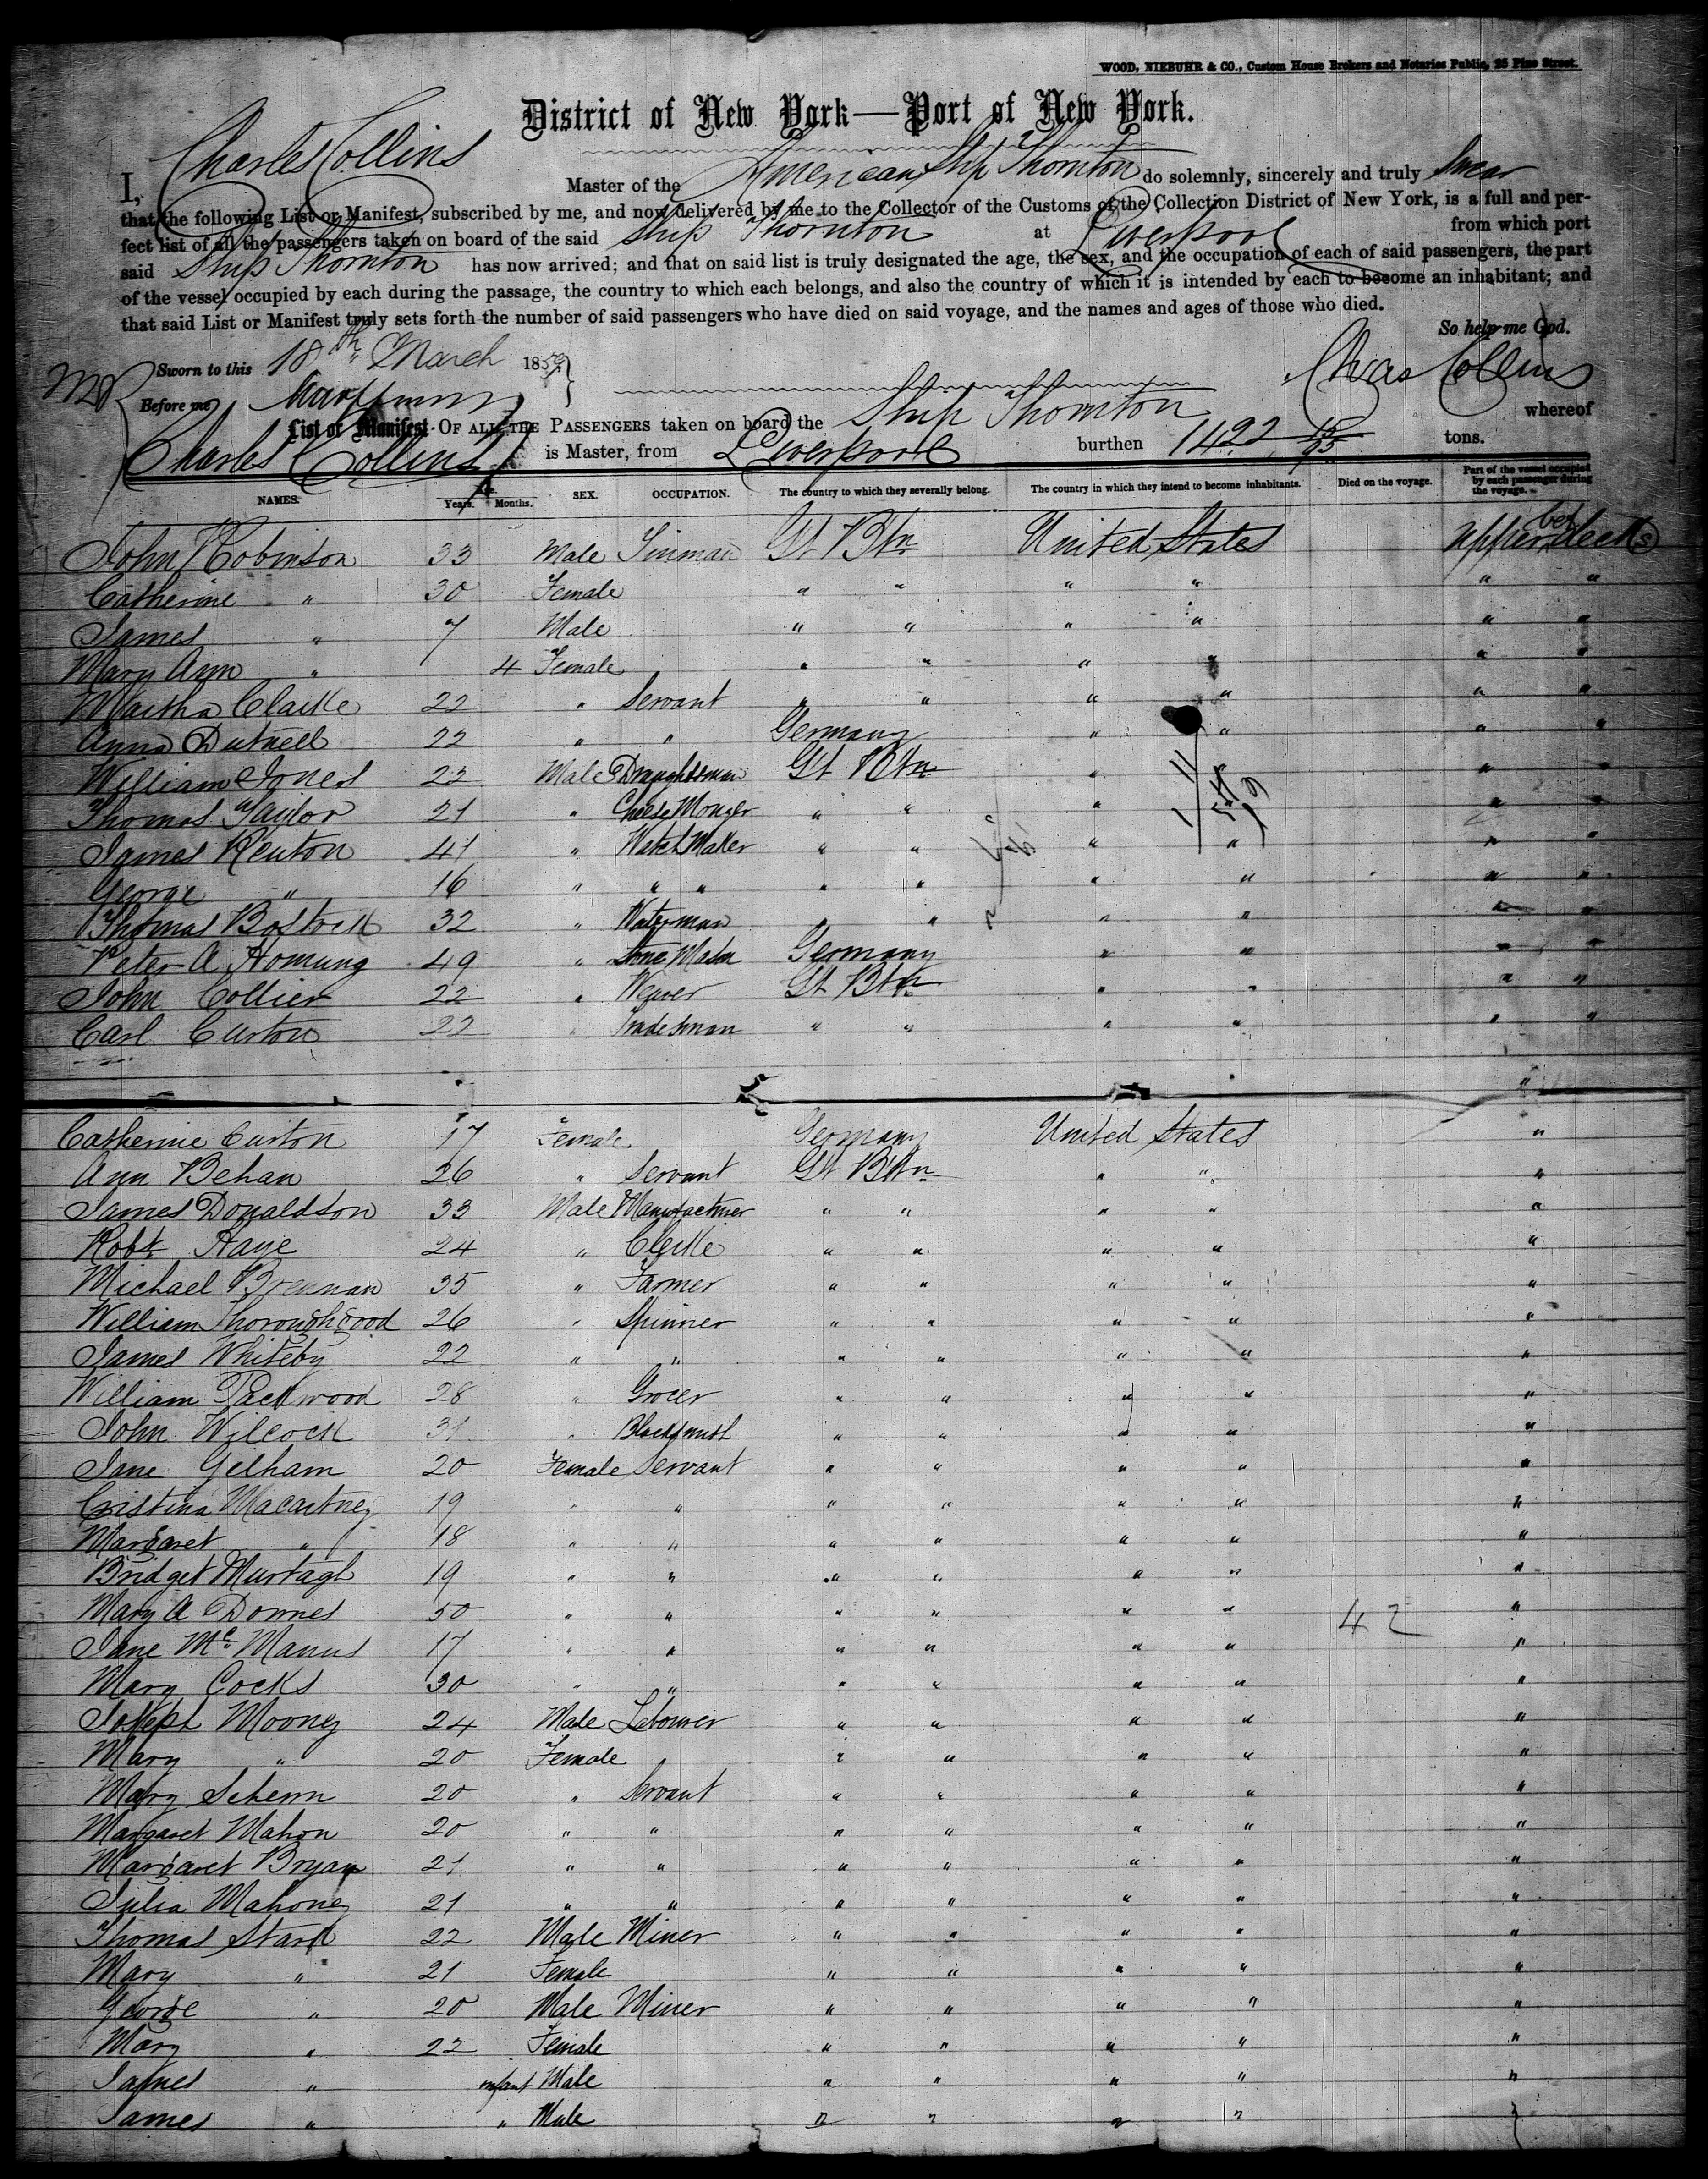 WOOD, NIEBUHR & CO., Custom House Brokers and Notaries Public, 25 Pine Street.
District of New York—Port of New York.
I, Charles Collins Master of the American Ship Thornton do solemnly, sincerely and truly swear
that the following List or Manifest, subscribed by me, and now delivered by me to the Collector of the Customs of the Collection District of New York, is a full and per-
fect list of all the passengers taken on board of the said Ship Thornton at Liverpool from which port
said Ship Thornton has now arrived; and that on said list is truly designated the age, the sex, and the occupation of each of said passengers, the part
of the vessel occupied by each during the passage, the country to which each belongs, and also the country of which it is intended by each to become an inhabitant; and
that said List or Manifest truly sets forth the number of said passengers who have died on said voyage, and the names and ages of those who died.
So help me God.
Sworn to this 18th March 1859
Chas Collins
Before me
List or Manifest OF ALL THE PASSENGERS taken on board the Ship Thornton whereof
Charles Collins is Master, from Liverpool burthen 1422 15/95 tons.
NAMES. Age. Years. Months. SEX. OCCUPATION. The country to which they severally belong. The country in which they intend to become inhabitants. Died on the voyage. Part of the vessel occupied by each passenger during the voyage.
John Robinson 33 Male Tinman Gt Btn United States upper bet decks
Catherine " 30 Female " " " " " "
James " 7 Male " " " " " "
Mary Ann " 4 Female " " " " " "
Martha Clarke 22 " Servant " " " " " "
Anna Dutnell 22 " " Germany " " " "
William Jones 22 Male Draughtsman Gt Btn " " "
Thomas Taylor 21 " Cheese Monger " " " " "
James Renton 41 " Watch Maker " " " " " "
George " 16 " " " " " " " " "
Thomas Bostock 32 " Waterman " " " " " "
Peter A Hornung 49 " Stone Mason Germany " " " "
John Collier 22 " Weaver Gt Btn " " " "
Carl Curton 22 " Tradesman " " " " " "
"
Catherine Curton 17 Female Germany United States "
Ann Behan 26 " Servant Gt Btn " " "
James Donaldson 33 Male Manufacturer " " " " "
Robt Haye 24 " Clerke " " " " "
Michael Brennan 35 " Farmer " " " " "
William Thoroughgood 26 " Spinner " " " " "
James Whiteby 22 " " " " " " "
William Packwood 28 " Grocer " " " " "
John Wilcock 31 " Blacksmith " " " " "
Jane Gelham 20 Female Servant " " " " "
Cristina Macartney 19 " " " " " " "
Margaret " 18 " " " " " " "
Bridget Murtagh 19 " " " " " " "
Mary A Downes 50 " " " " " " 42 "
Jane McManus 17 " " " " " " "
Mary Cocks 30 " " " " " " "
Joseph Mooney 24 Male Labourer " " " " "
Mary " 20 Female " " " " "
Mary Schern 20 " Servant " " " " "
Margaret Mahon 20 " " " " " " "
Margaret Bryan 21 " " " " " " "
Julia Mahoney 21 " " " " " " "
Thomas Stark 22 Male Miner " " " " "
Mary " 21 Female " " " " "
George " 20 Male Miner " " " " "
Mary " 22 Female " " " " "
James " infant Male " " " " "
James " " Male " " " " "